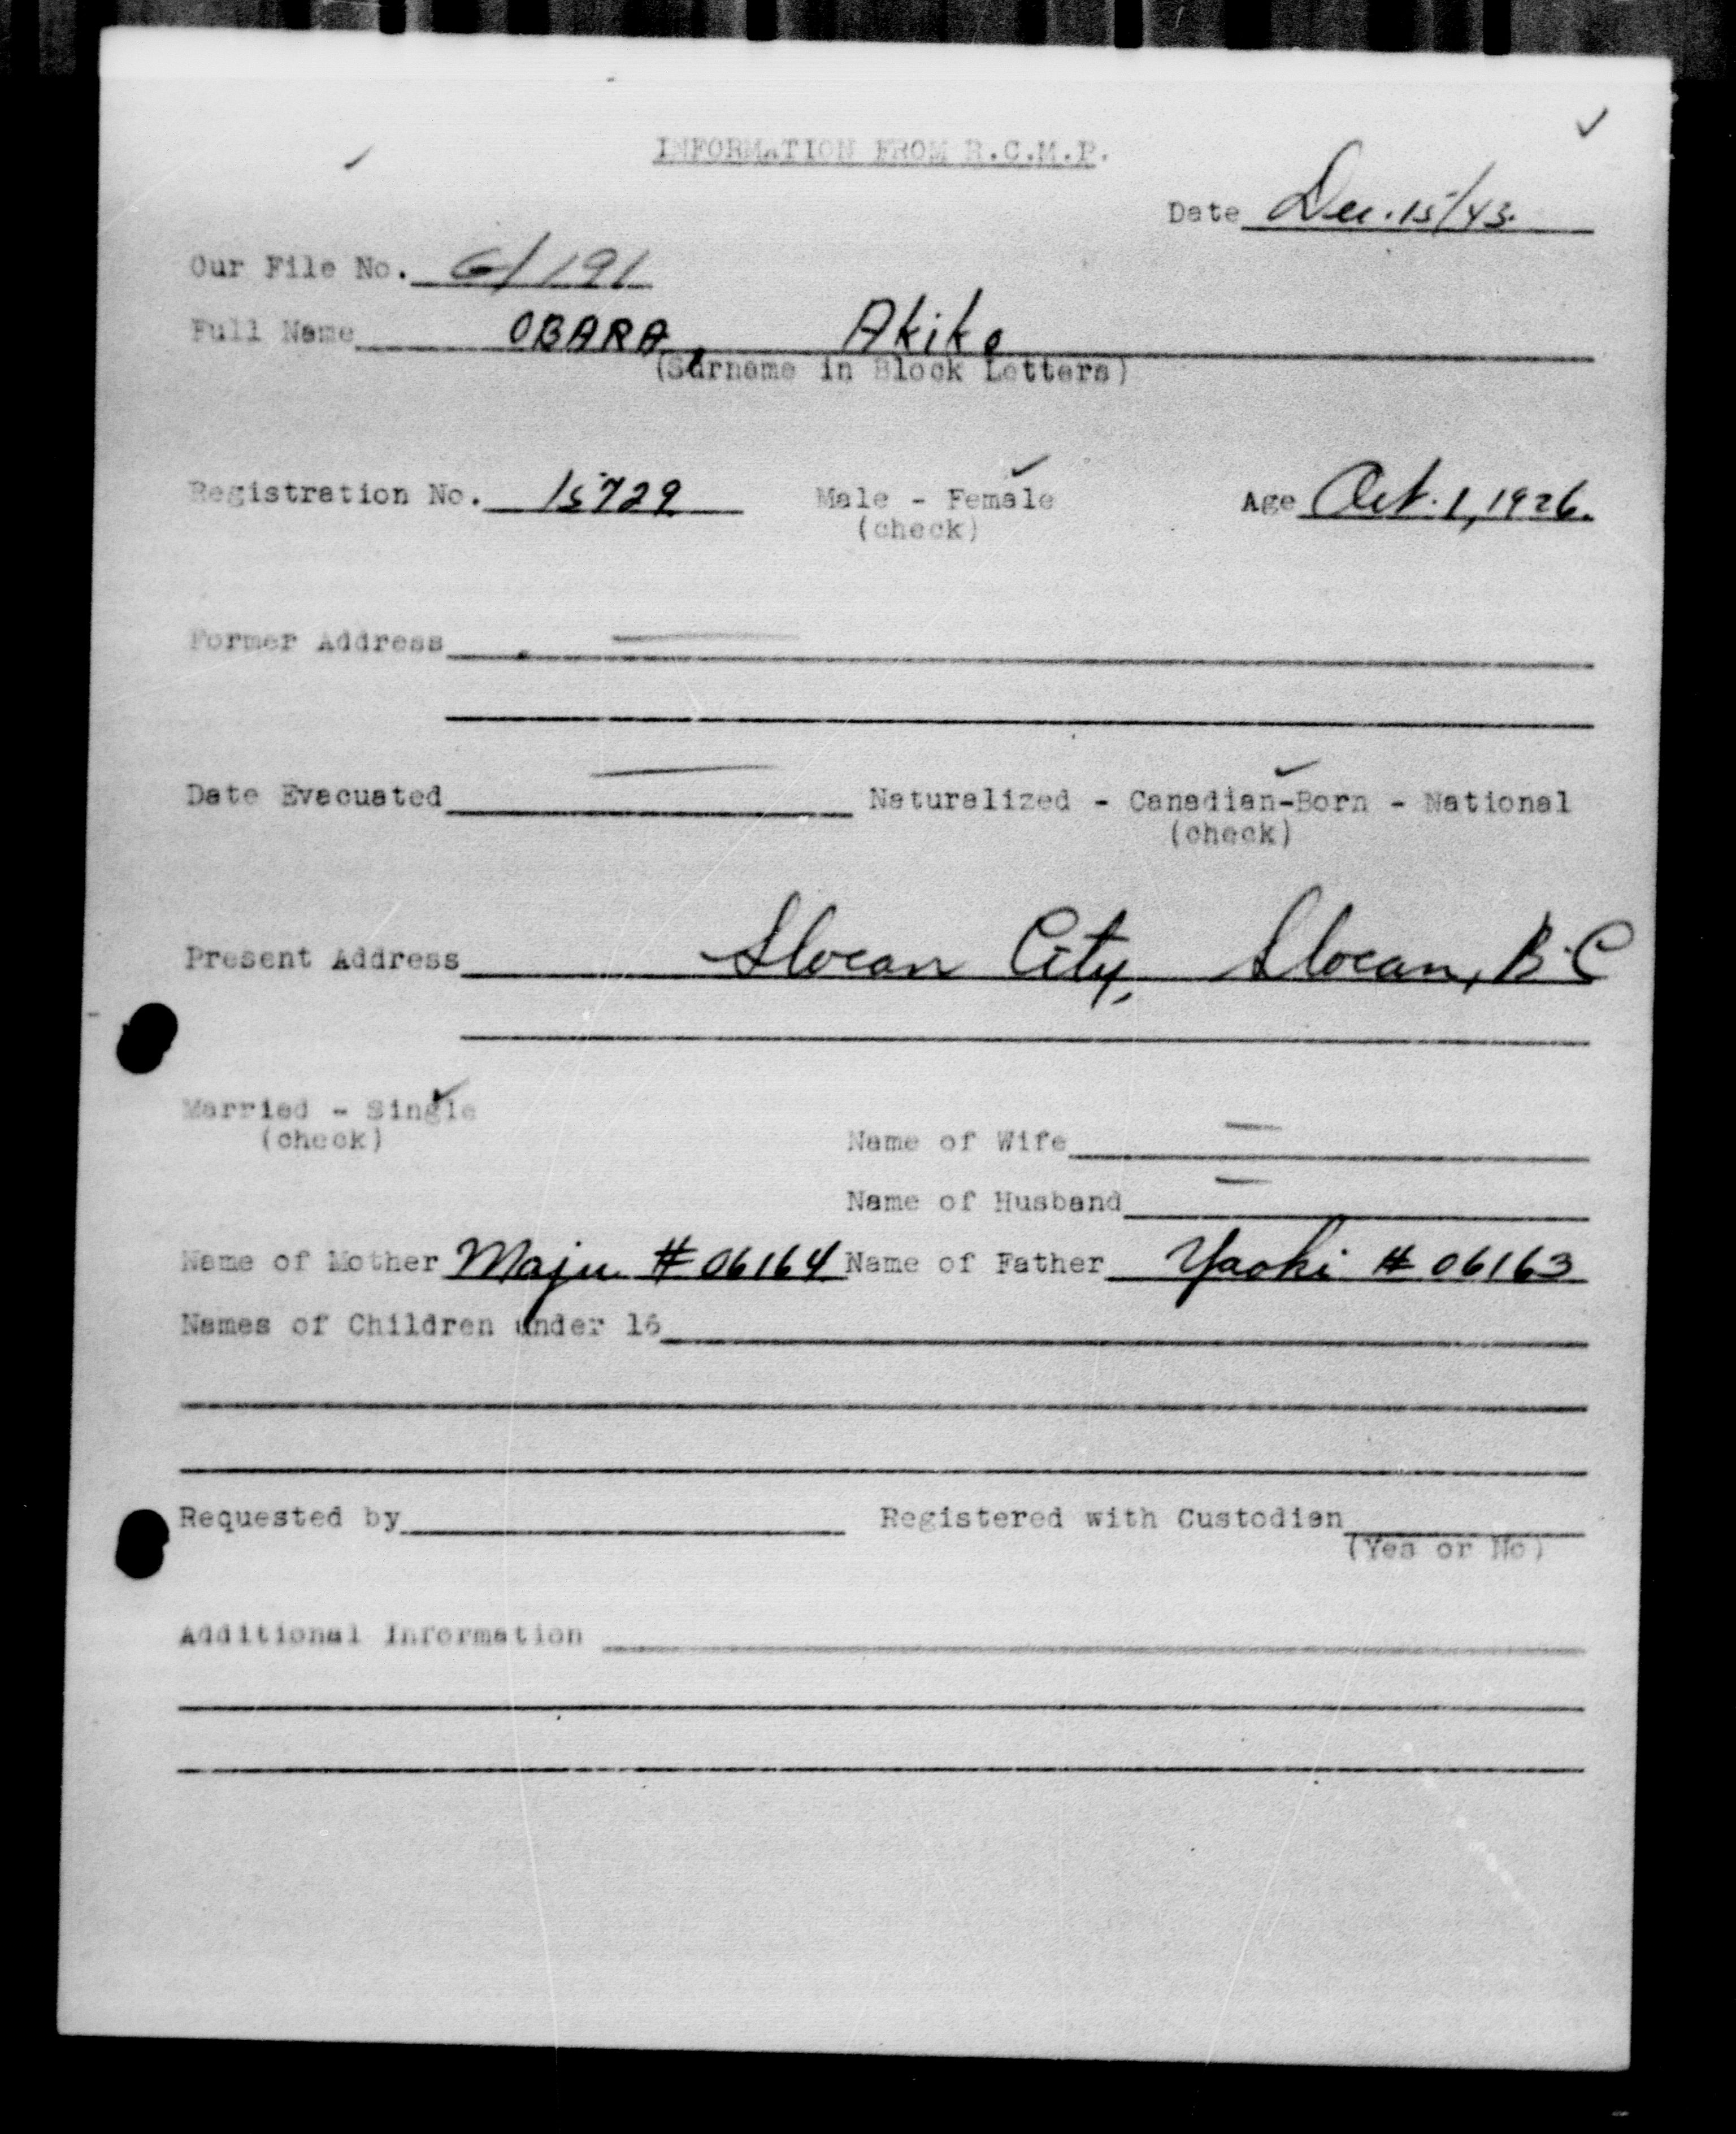 INFORMATION FROM R.C.M.P.
Date Dec. 15/43.
Our File No. G/191
Full Name OBARA, Akiko
(Surname in Block Letters)
Registration No. 15729 Male - Female Age Oct. 1, 1926.
(check)
Former Address
Date Evacuated Naturalized - Canadian-Born - National
(check)
Present Address Slocan City, Slocan, B.C
Married - Single
(check)
Name of Wife
Name of Husband
Name of Mother Maju #06164 Name of Father Yaoki # 06163
Names of Children under 16
Requested by Registered with Custodian
(Yes or No)
Additional Information